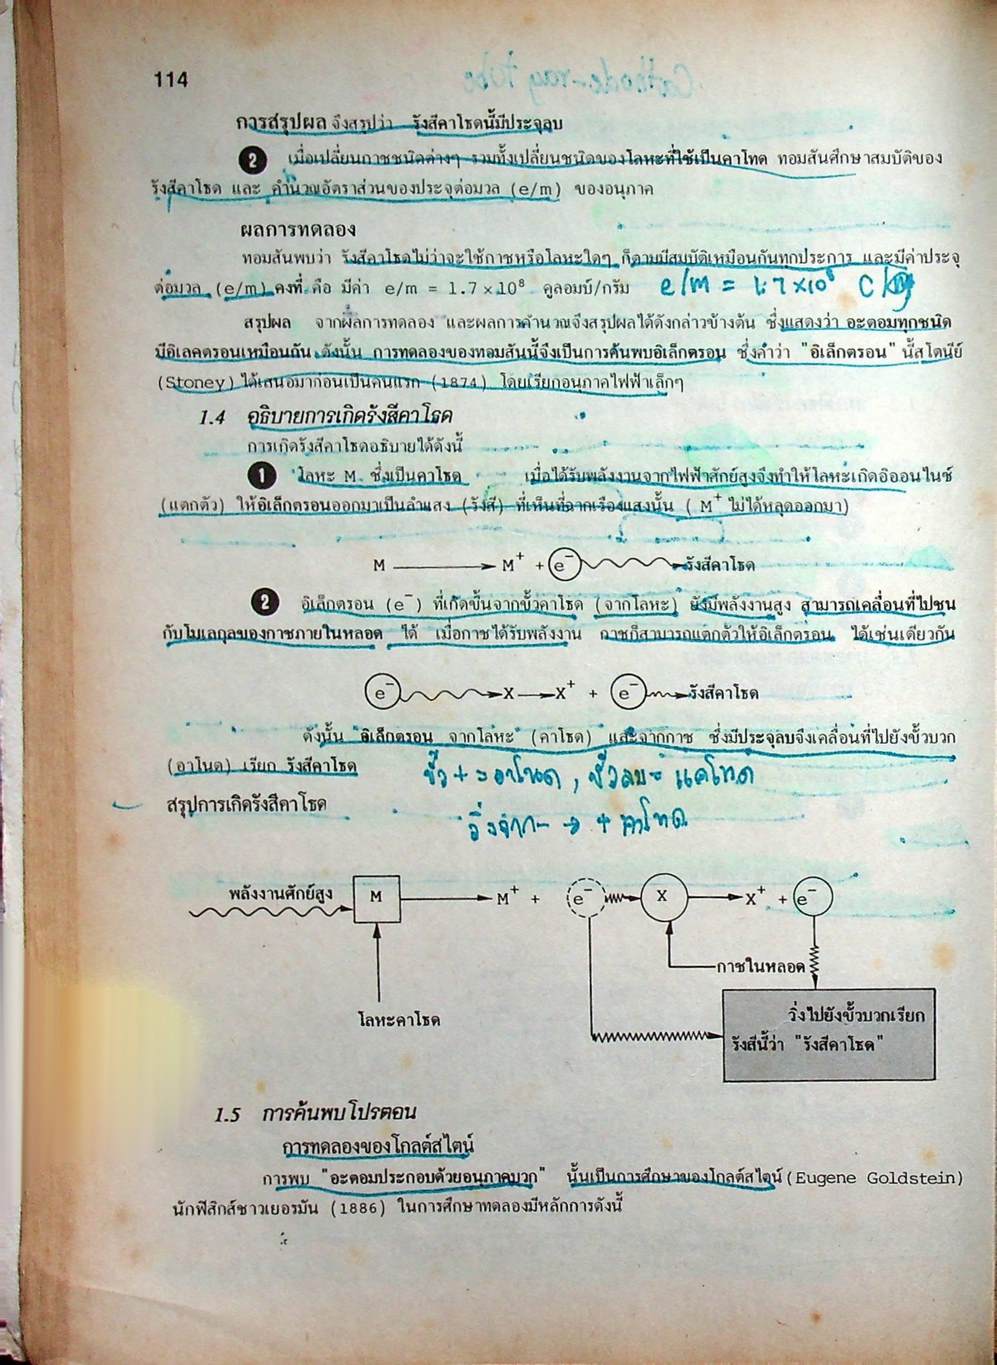 114
การสรุปผล จึงสรุปว่า รังสีคาโธดนี้มีประจุลบ
2 เมื่อเปลี่ยนกาซชนิดต่างๆ รวมทั้งเปลี่ยนชนิดของโลหะที่ใช้เป็นคาโทด ทอมสันศึกษาสมบัติของ
รังสีคาโธด และ คำนวณอัตราส่วนของประจุต่อมวล (e/m) ของอนุภาค
ผลการทดลอง
ทอมสันพบว่า รังสีคาโธดไม่ว่าจะใช้กาซหรือโลหะใดๆ ก็ตามมีสมบัติเหมือนกันทุกประการ และมีค่าประจุ
ต่อมวล (e/m) คงที่ คือ มีค่า e/m = 1.7 × 10⁸ คูลอมบ์/กรัม e/m = 1.7 ×10⁸
สรุปผล จากผลการทดลอง และผลการคำนวณจึงสรุปผลได้ดังกล่าวข้างต้น ซึ่งแสดงว่า อะตอมทุกชนิด
มีอิเลคตรอนเหมือนกัน ดังนั้น การทดลองของทอมสันนี้จึงเป็นการค้นพบอิเล็กตรอน ซึ่งคำว่า "อิเล็กตรอน" นี้สโตนีย์
(Stoney) ได้เสนอมาก่อนเป็นคนแรก (1874) โดยเรียกอนุภาคไฟฟ้าเล็กๆ
1.4 อธิบายการเกิดรังสีคาโธด
การเกิดรังสีคาโธดอธิบายได้ดังนี้
1 โลหะ M ซึ่งเป็นคาโธด เมื่อได้รับพลังงานจากไฟฟ้าศักย์สูงจึงทำให้โลหะเกิดอิออนไนซ์
(แตกตัว) ให้อิเล็กตรอนออกมาเป็นลำแสง (รังสี) ที่เห็นที่ฉากเรืองแสงนั้น ( M⁺ ไม่ได้หลุดออกมา)
M M⁺ + e⁻ รังสีคาโธด
2 อิเล็กตรอน (e⁻) ที่เกิดขึ้นจากขั้วคาโธด (จากโลหะ) ยังมีพลังงานสูง สามารถเคลื่อนที่ไปชน
กับโมเลกุลของกาซภายในหลอด ได้ เมื่อกาซได้รับพลังงาน กาซก็สามารถแตกตัวให้อิเล็กตรอน ได้เช่นเดียวกัน
e⁻ X X⁺ + e⁻ รังสีคาโธด
ดังนั้น อิเล็กตรอน จากโลหะ (คาโธด) และจากกาซ ซึ่งมีประจุลบจึงเคลื่อนที่ไปยังขั้วบวก
(อาโนด) เรียก รังสีคาโธด ขั้ว + = อาโนด, ขั้วลบ = แคโทด
สรุปการเกิดรังสีคาโธด
วิ่งจาก - → + คาโทด
พลังงานศักย์สูง M M⁺ + e⁻ X X⁺ + e⁻
กาซในหลอด
โลหะคาโธด
วิ่งไปยังขั้วบวกเรียก
รังสีนี้ว่า "รังสีคาโธด"
1.5 การค้นพบโปรตอน
การทดลองของโกลด์สไตน์
การพบ "อะตอมประกอบด้วยอนุภาคบวก" นั้นเป็นการศึกษาของโกลด์สไตน์ (Eugene Goldstein)
นักฟิสิกส์ชาวเยอรมัน (1886) ในการศึกษาทดลองมีหลักการดังนี้